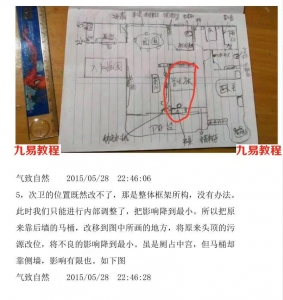 九易教程
九易教程
气致自然 2015/05/28 22:46:06
5，次卫的位置既然改不了，那是整体框架所构，没有办法。
此时我们只能进行内部调整了，把影响降到最小。所以把原
来靠后墙的马桶，改移到图中所画的地方，将原来头顶的污
源改位，将不良的影响降到最小。虽是厕占中宫，但马桶却
靠侧墙，影响有限也。如下图
气致自然 2015/05/28 22:46:28